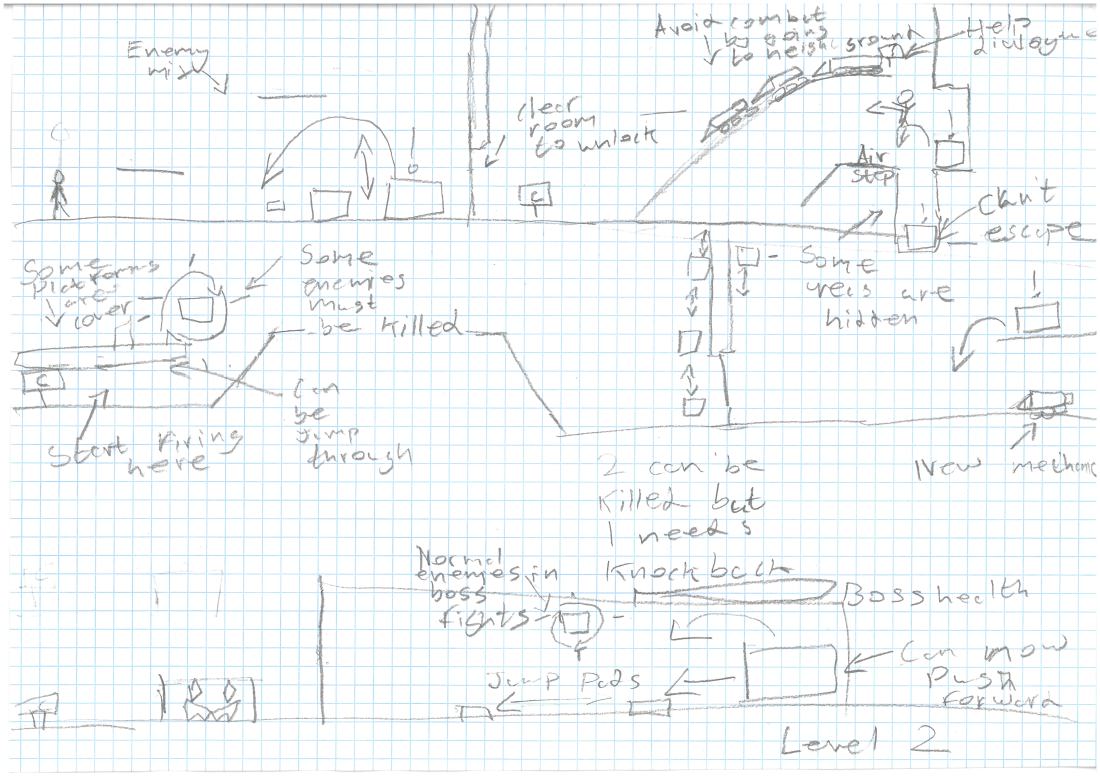 Enemy
mix
clear
room
to unlock
C
Avoid combat
by going
to heigh ground
Help
Air
stop
Can't
escape
Some
are
hidden
Some
platforms
are
cover
Some
enemies
must
be killed
C
Start firing
here
Can
be
jump
through
New mechanic
2 can be
killed but
1 needs
knock back
Normal
enemes in
boss
fights
Boss health
Jump Pads
Can mow
Push
forward
C
Level 2